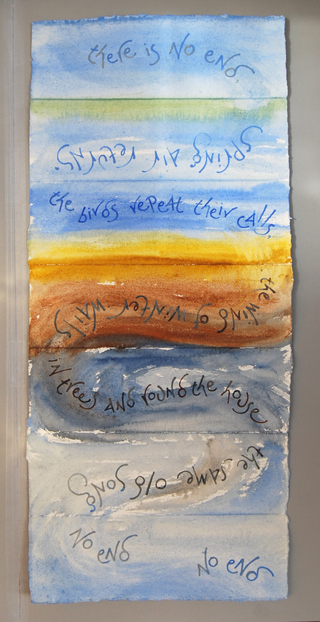 there is no end
spring air returns
the birds repeat their calls
the wind of winter
in trees and round the house
the same old song
no end
no end